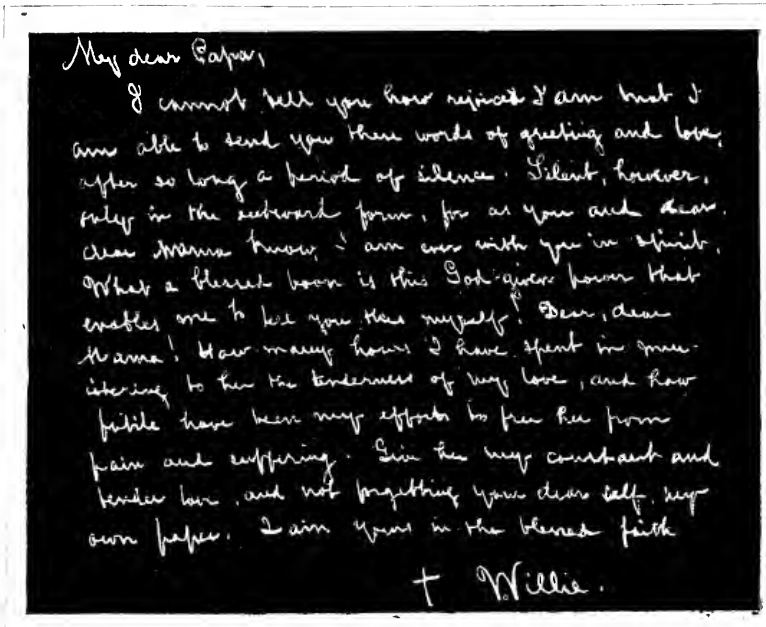 My dear Papa,
I cannot tell you how rejoiced I am that I
am able to send you these words of greeting and love,
after so long a period of silence. Silent, however,
only in the outward form, for as you and dear,
dear Mama know, I am ever with you in spirit.
What a blessed boon is this God-given power that
enables me to tell you this myself! Dear, dear
Mama! How many hours I have spent in min-
istering to her the tenderness of my love, and how
futile have been my efforts to free her from
pain and suffering. Give her my constant and
tender love, and not forgetting your dear self, my
own papa. I am yours in the blessed faith
† Willie.